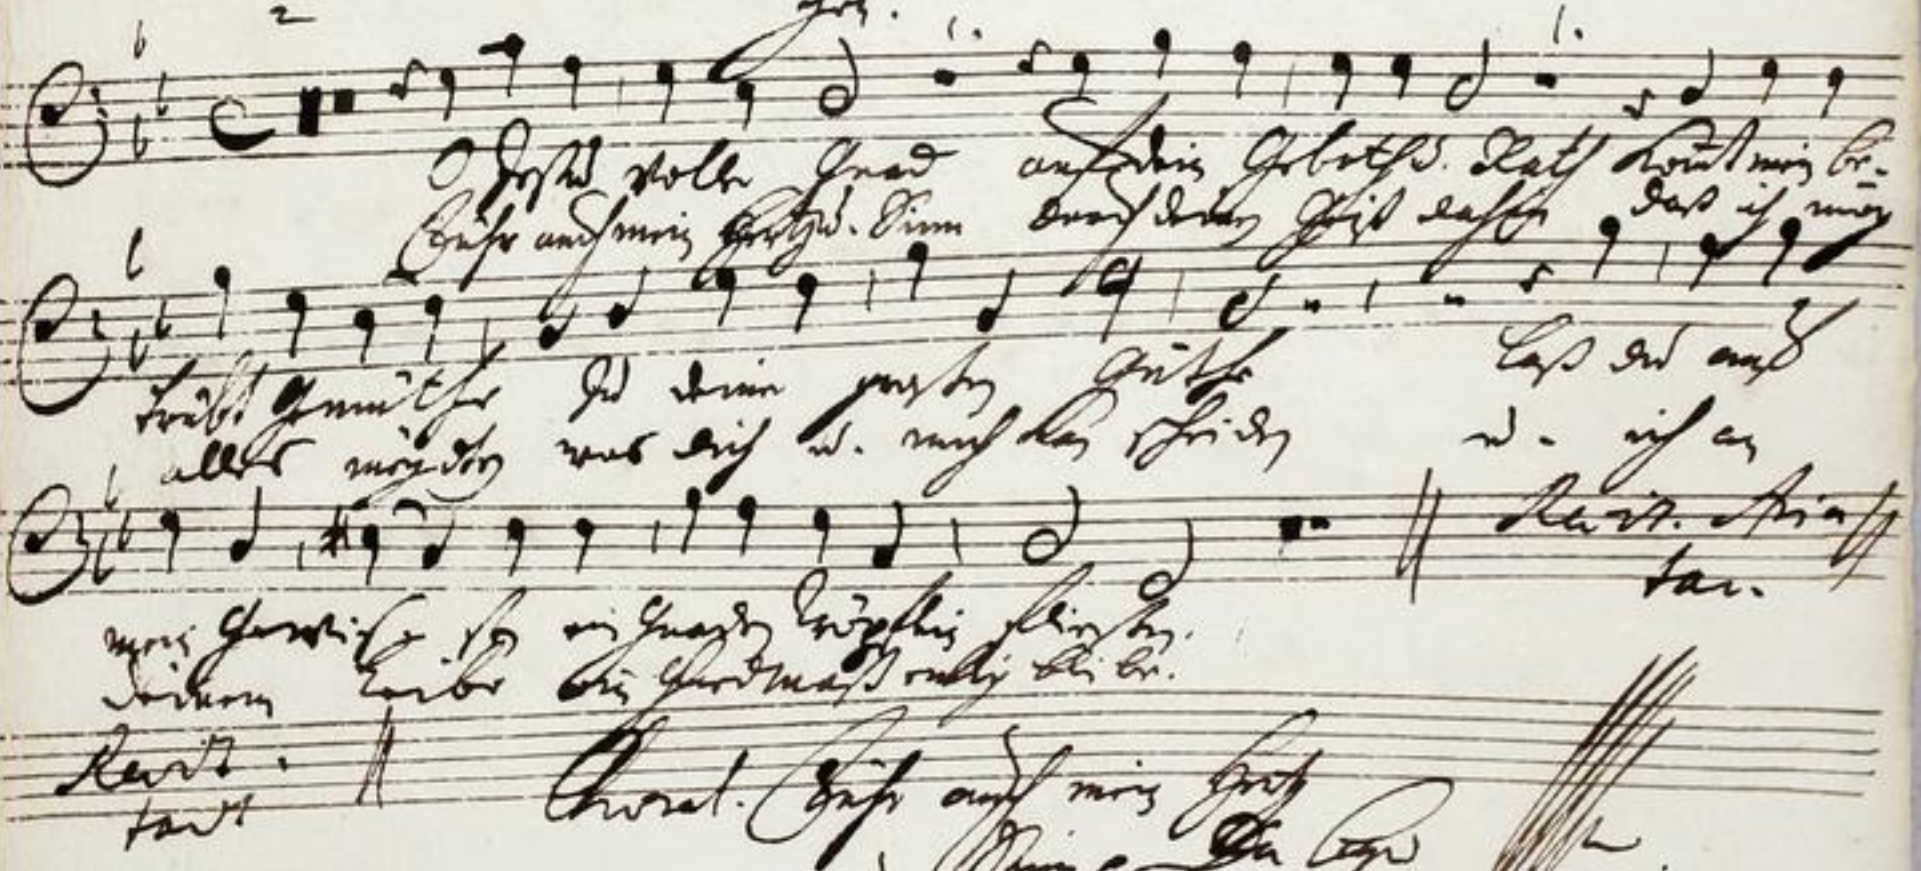 O Jesu voller Gnad auf dein Geboth u. Rath komt mein be-
Führ auch mein Hertz u. Sinn durch deinen Geist dahin daß ich mög
trübt Gemüthe zu deiner großen Güthe laß du auf
alles meyden was dich u. mich kan scheiden u. ich an
mein Gewißen ein Gnaden Tröpflein fließen.
deinem Leibe ein Gliedmaß ewig bleibe.
Recit. Aria
tac.
Recit
tacit
Choral. Führ auch mein Hertz
Da Capo